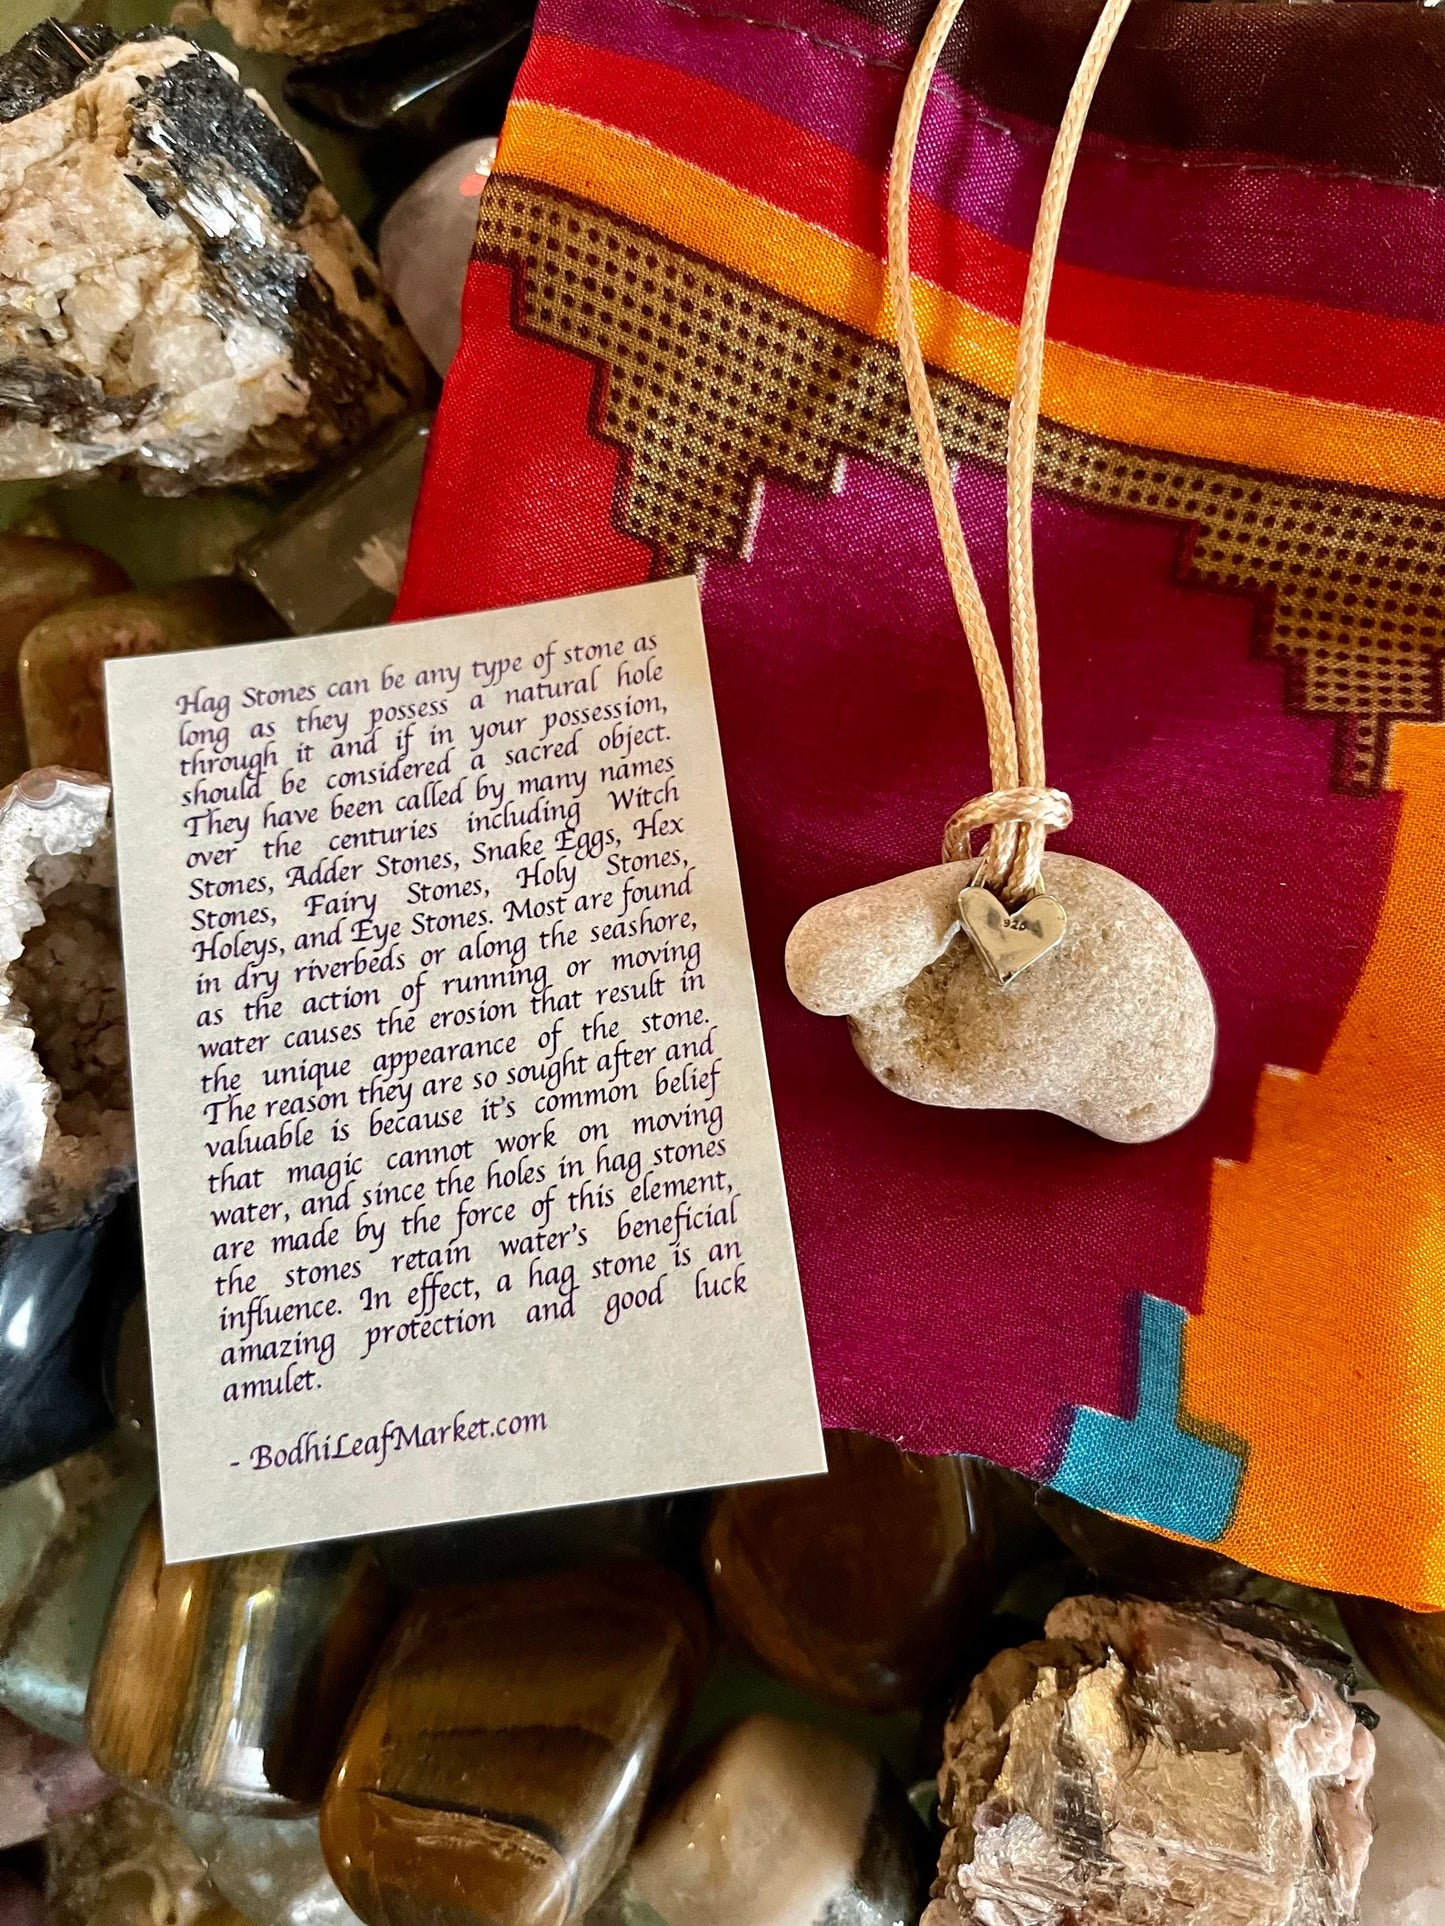 Hag Stones can be any type of stone as
long as they possess a natural hole
through it and if in your possession,
should be considered a sacred object.
They have been called by many names
over the centuries including Witch
Stones, Adder Stones, Snake Eggs, Hex
Stones, Fairy Stones, Holy Stones,
Holeys, and Eye Stones. Most are found
in dry riverbeds or along the seashore,
as the action of running or moving
water causes the erosion that result in
the unique appearance of the stone.
The reason they are so sought after and
valuable is because it's common belief
that magic cannot work on moving
water, and since the holes in hag stones
are made by the force of this element,
the stones retain water's beneficial
influence. In effect, a hag stone is an
amazing protection and good luck
amulet.
- BodhiLeafMarket.com
925